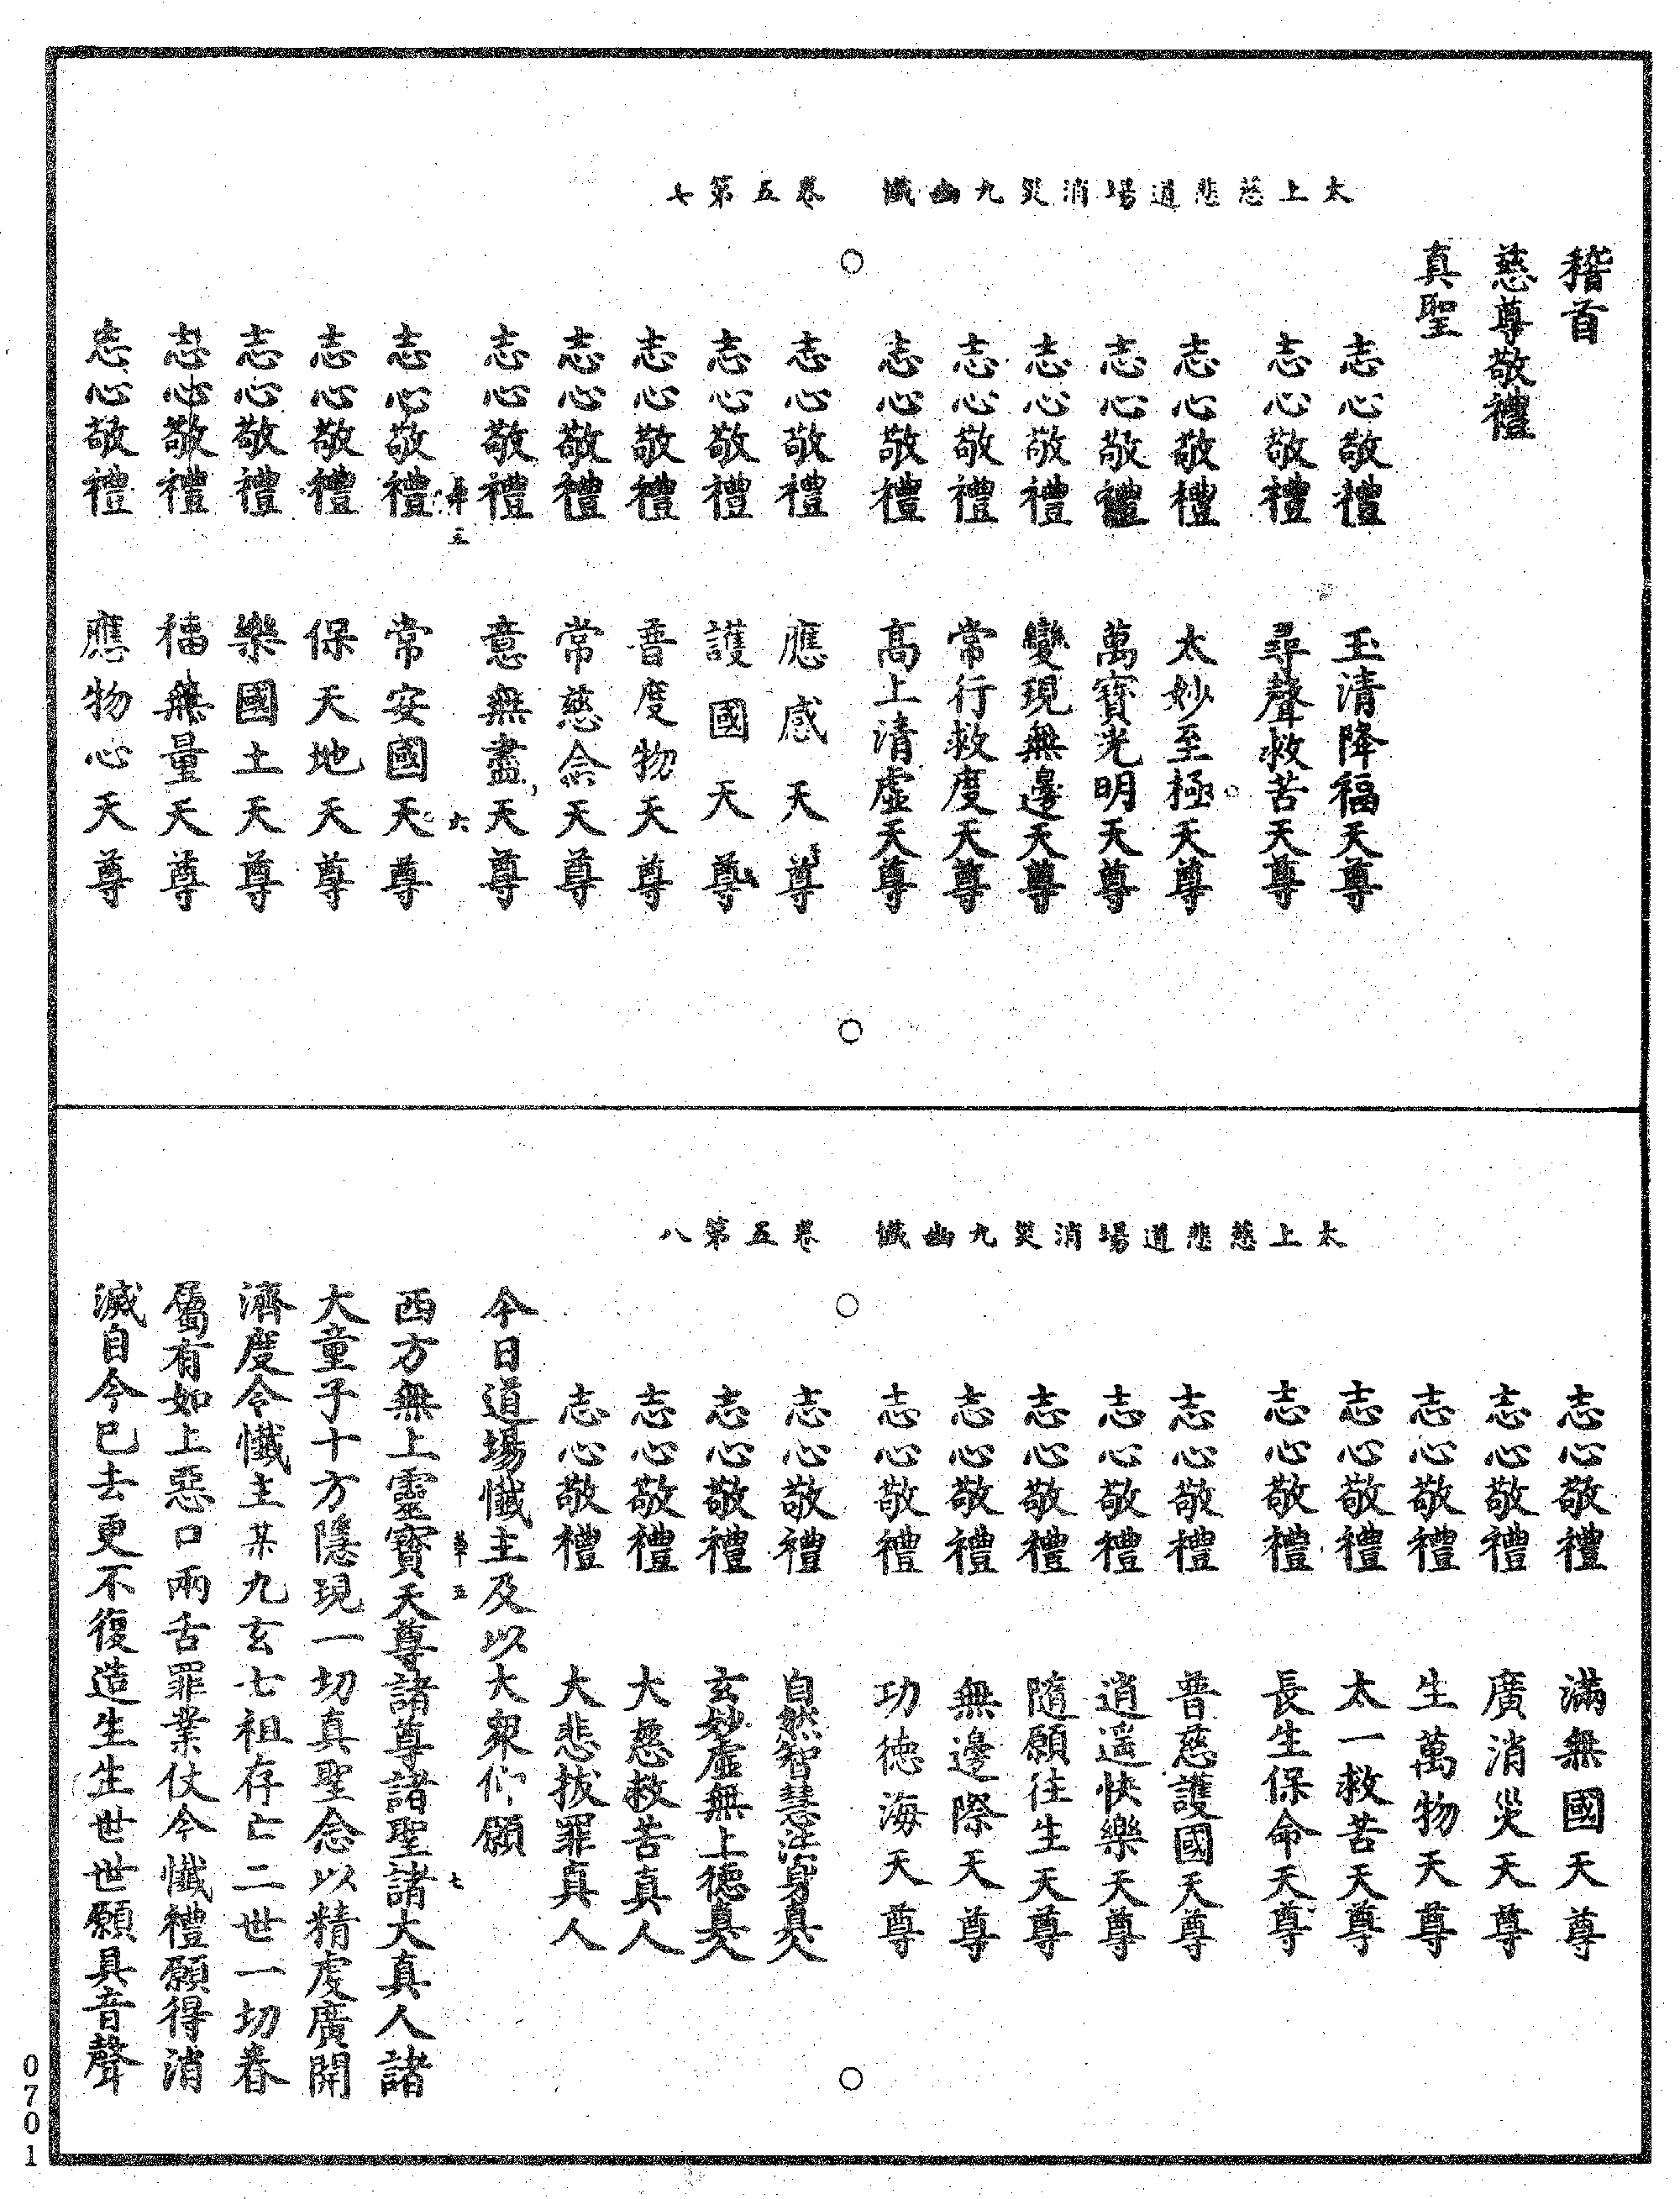 太上慈悲道場消災九幽懺　卷五第七
稽首
慈尊敬禮
真聖
志心敬禮　玉清降福天尊
志心敬禮　尋聲救苦天尊
志心敬禮　太妙至極天尊
志心敬禮　萬寶光明天尊
志心敬禮　變現無邊天尊
志心敬禮　常行救度天尊
志心敬禮　高上清虛天尊
志心敬禮　應感天尊
志心敬禮　護國天尊
志心敬禮　普度物天尊
志心敬禮　常慈念天尊
志心敬禮　意無盡天尊
志心敬禮　常安國天尊
志心敬禮　保天地天尊
志心敬禮　樂國土天尊
志心敬禮　福無量天尊
志心敬禮　應物心天尊
太上慈悲道場消災九幽懺　卷五第八
志心敬禮　滿無國天尊
志心敬禮　廣消災天尊
志心敬禮　生萬物天尊
志心敬禮　太一救苦天尊
志心敬禮　長生保命天尊
志心敬禮　普慈護國天尊
志心敬禮　逍遥快樂天尊
志心敬禮　隨願往生天尊
志心敬禮　無邊際天尊
志心敬禮　功德海天尊
志心敬禮　自然智慧法身真人
志心敬禮　玄妙虛無上德真人
志心敬禮　大慈救苦真人
志心敬禮　大悲拔罪真人
今日道場懺主及以大衆仰願
西方無上靈寶天尊諸尊諸聖諸大真人諸
大童子十方隱現一切真聖念以精虔廣開
濟度令懺主某九玄七祖存亡二世一切眷
屬有如上惡口兩舌罪業仗今懺禮願得消
滅自今已去更不復造生生世世願具音聲
0701